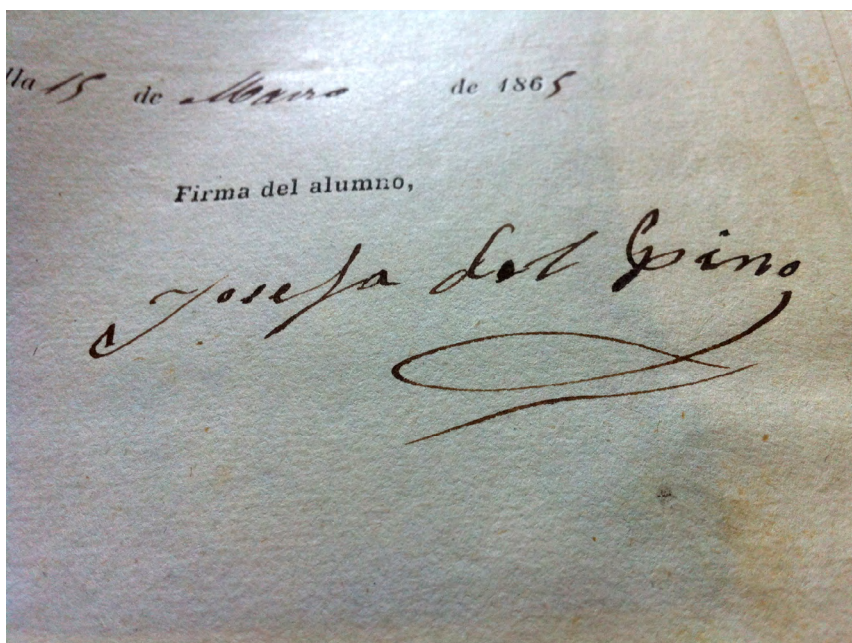 lla 15 de Marzo de 1865
Firma del alumno,
Josefa del Pino